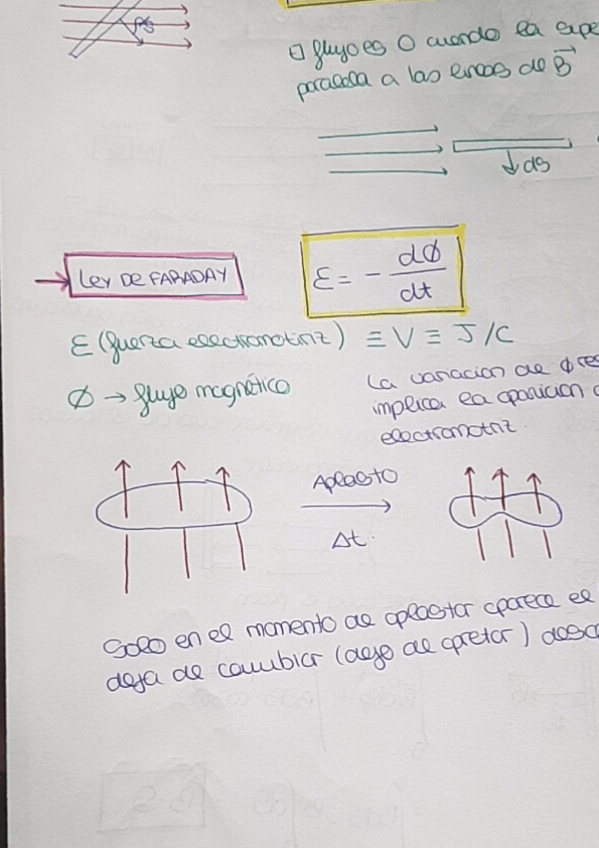 dS
□ flujo es 0 cuando la supe
paralela a las líneas de B⃗
↓ dS
→ LEY DE FARADAY
ε = - dϕ/dt
ε (fuerza electromotriz) ≡ V ≡ J/C
ϕ → flujo magnético
La variación de ϕ res
implica la aparición d
electromotriz.
Aplasto
Δt.
Solo en el momento de aplastar aparece el
deja de cambiar (dejo de apretar) desa